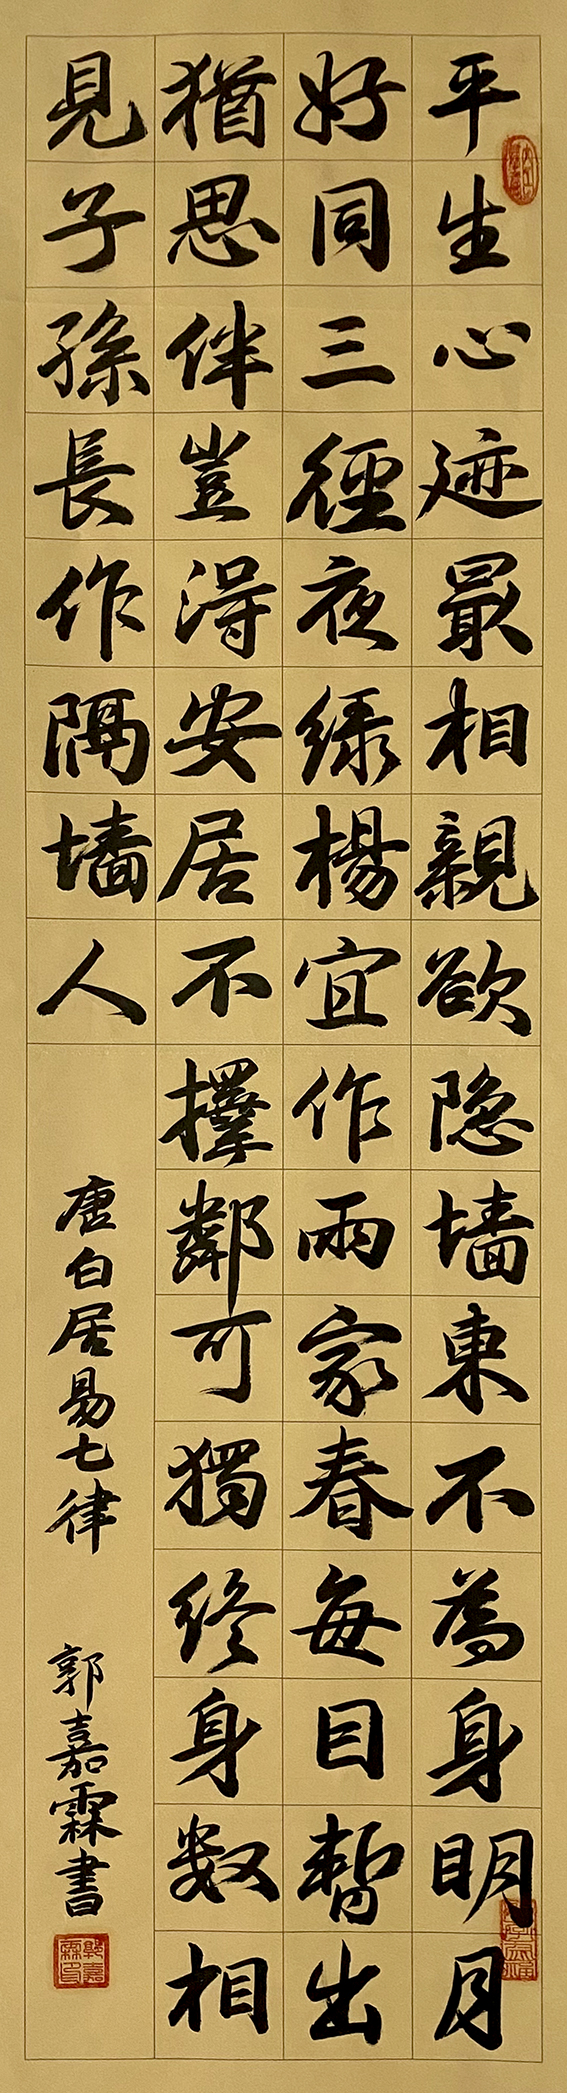 平生心迹最相親欲隐墙東不為身明月
好同三徑夜绿楊宜作兩家春每因暫出
猶思伴豈得安居不擇鄰可獨終身数相
見子孫長作隔墙人
唐白居易七律
郭嘉霖書
郭嘉霖印